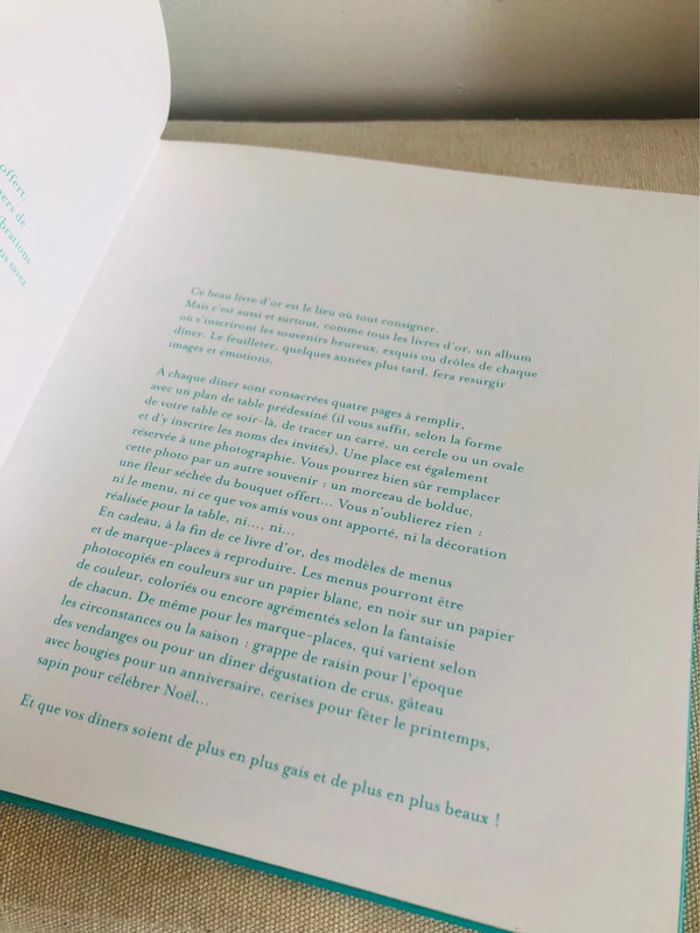 offert,
de
ous savez
Ce beau livre d'or est le lieu où tout consigner.
Mais c'est aussi et surtout, comme tous les livres d'or, un album
où s'inscriront les souvenirs heureux, exquis ou drôles de chaque
dîner. Le feuilleter, quelques années plus tard, fera resurgir
images et émotions.
À chaque dîner sont consacrées quatre pages à remplir,
avec un plan de table prédessiné (il vous suffit, selon la forme
de votre table ce soir-là, de tracer un carré, un cercle ou un ovale
et d'y inscrire les noms des invités). Une place est également
réservée à une photographie. Vous pourrez bien sûr remplacer
cette photo par un autre souvenir : un morceau de bolduc,
une fleur séchée du bouquet offert... Vous n'oublierez rien :
ni le menu, ni ce que vos amis vous ont apporté, ni la décoration
réalisée pour la table, ni..., ni...
En cadeau, à la fin de ce livre d'or, des modèles de menus
et de marque-places à reproduire. Les menus pourront être
photocopiés en couleurs sur un papier blanc, en noir sur un papier
de couleur, coloriés ou encore agrémentés selon la fantaisie
de chacun. De même pour les marque-places, qui varient selon
les circonstances ou la saison : grappe de raisin pour l'époque
des vendanges ou pour un dîner dégustation de crus, gâteau
avec bougies pour un anniversaire, cerises pour fêter le printemps,
sapin pour célébrer Noël...
Et que vos dîners soient de plus en plus gais et de plus en plus beaux !